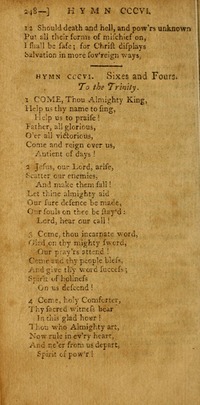 248—] HYMN CCCVI.
12 Should death and hell, and pow'rs unknown
Put all their forms of mischief on,
I shall be safe; for Christ displays
Salvation in more sov'reign ways.
HYMN CCCVI. Sixes and Fours.
To the Trinity.
1 COME, Thou Almighty King,
Help us thy name to sing,
Help us to praise!
Father, all glorious,
O'er all victorious,
Come and reign over us,
Antient of days!
2 Jesus, our Lord, arise,
Scatter our enemies,
And make them fall!
Let thine almighty aid
Our sure defence be made,
Our souls on thee be stay'd:
Lord, hear our call!
3 Come, thou incarnate word,
Gird on thy mighty sword,
Our pray'rs attend!
Come and thy people bless,
And give thy word success;
Spirit of holiness
On us descend!
4 Come, holy Comforter,
Thy sacred witness bear
In this glad hour!
Thou who Almighty art,
Now rule in ev'ry heart,
And ne'er from us depart,
Spirit of pow'r!